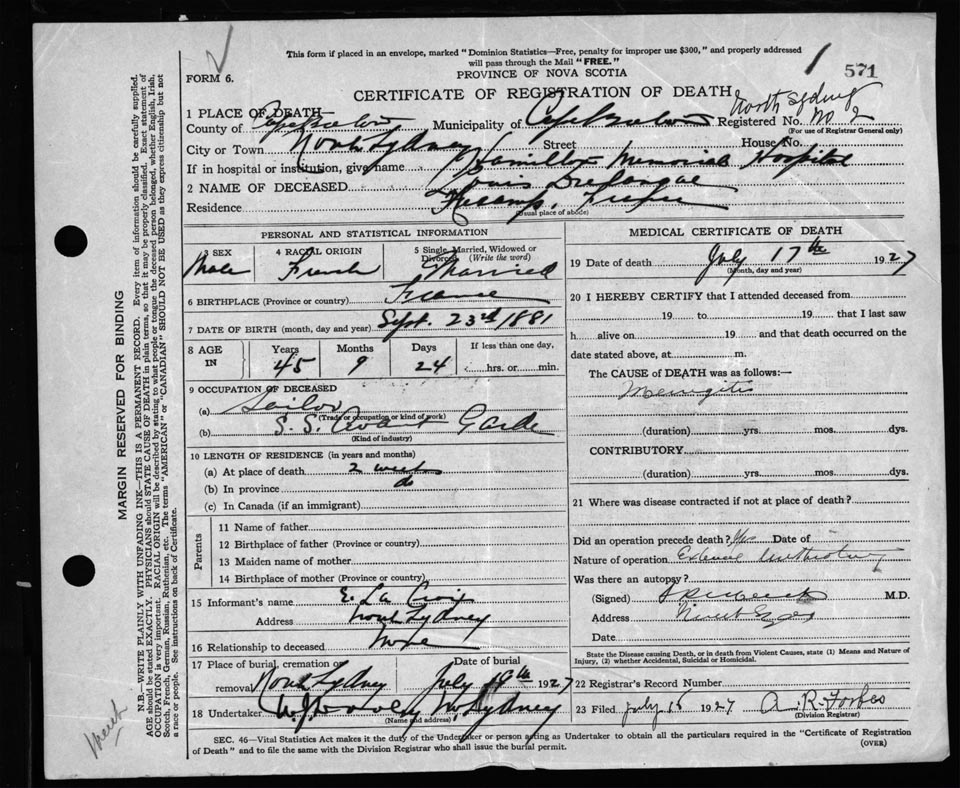 This form if placed in an envelope, marked "Dominion Statistics—Free, penalty for improper use $300," and properly addressed
will pass through the Mail "FREE."
1
571
FORM 6.
PROVINCE OF NOVA SCOTIA
CERTIFICATE OF REGISTRATION OF DEATH
North Sydney
1 PLACE OF DEATH
County of Cape Breton Municipality of Cape Breton Registered No. No 2
(For use of Registrar General only)
City or Town North Sydney Street House No.
If in hospital or institution, give name Hamilton Memorial Hospital
2 NAME OF DECEASED Louis
Residence Fecamp.
(Usual place of abode)
PERSONAL AND STATISTICAL INFORMATION
3 SEX Male
4 RACIAL ORIGIN French
5 Single, Married, Widowed or Divorced (Write the word) Married
6 BIRTHPLACE (Province or country) France
7 DATE OF BIRTH (month, day and year) Sept. 23rd 1881
8 AGE IN Years 45 Months 9 Days 24 If less than one day, hrs. or min.
9 OCCUPATION OF DECEASED
(a) Sailor
(Trade or occupation or kind of work)
(b) S. S. Avant Garde
(Kind of industry)
10 LENGTH OF RESIDENCE (in years and months)
(a) At place of death 2 weeks
(b) In province do
(c) In Canada (if an immigrant)
Parents
11 Name of father
12 Birthplace of father (Province or country)
13 Maiden name of mother
14 Birthplace of mother (Province or country)
15 Informant's name E. La Croix
Address North Sydney
16 Relationship to deceased None
17 Place of burial, cremation or removal North Sydney Date of burial July 19th 1927
18 Undertaker N. Sydney
(Name and address)
MEDICAL CERTIFICATE OF DEATH
19 Date of death July 17th 1927
(Month, day and year)
20 I HEREBY CERTIFY that I attended deceased from
19 to 19 that I last saw
h alive on 19 and that death occurred on the
date stated above, at m.
The CAUSE of DEATH was as follows:
Meningitis
(duration) yrs. mos. dys.
CONTRIBUTORY
(duration) yrs. mos. dys.
21 Where was disease contracted if not at place of death?
Did an operation precede death? Yes Date of
Nature of operation
Was there an autopsy?
(Signed) M.D.
Address
Date
State the Disease causing Death, or in death from Violent Causes, state (1) Means and Nature of
Injury, (2) whether Accidental, Suicidal or Homicidal.
22 Registrar's Record Number
23 Filed July 18 1927 A. R. Forbes
(Division Registrar)
SEC. 46—Vital Statistics Act makes it the duty of the Undertaker or person acting as Undertaker to obtain all the particulars required in the "Certificate of Registration
of Death" and to file the same with the Division Registrar who shall issue the burial permit.
(OVER)
MARGIN RESERVED FOR BINDING
N.B.—WRITE PLAINLY WITH UNFADING INK—THIS IS A PERMANENT RECORD. Every item of information should be carefully supplied.
AGE should be stated EXACTLY. PHYSICIANS should STATE CAUSE OF DEATH in plain terms, so that it may be properly classified. Exact statement of
OCCUPATION is very important. RACIAL ORIGIN will be described by stating to what people or tongue the deceased person belonged, whether English, Irish,
Scotch, French, German, Russian, Ruthenian, etc. The terms "AMERICAN" or "CANADIAN" SHOULD NOT BE USED as they express citizenship but not
a race or people. See instructions on back of Certificate.